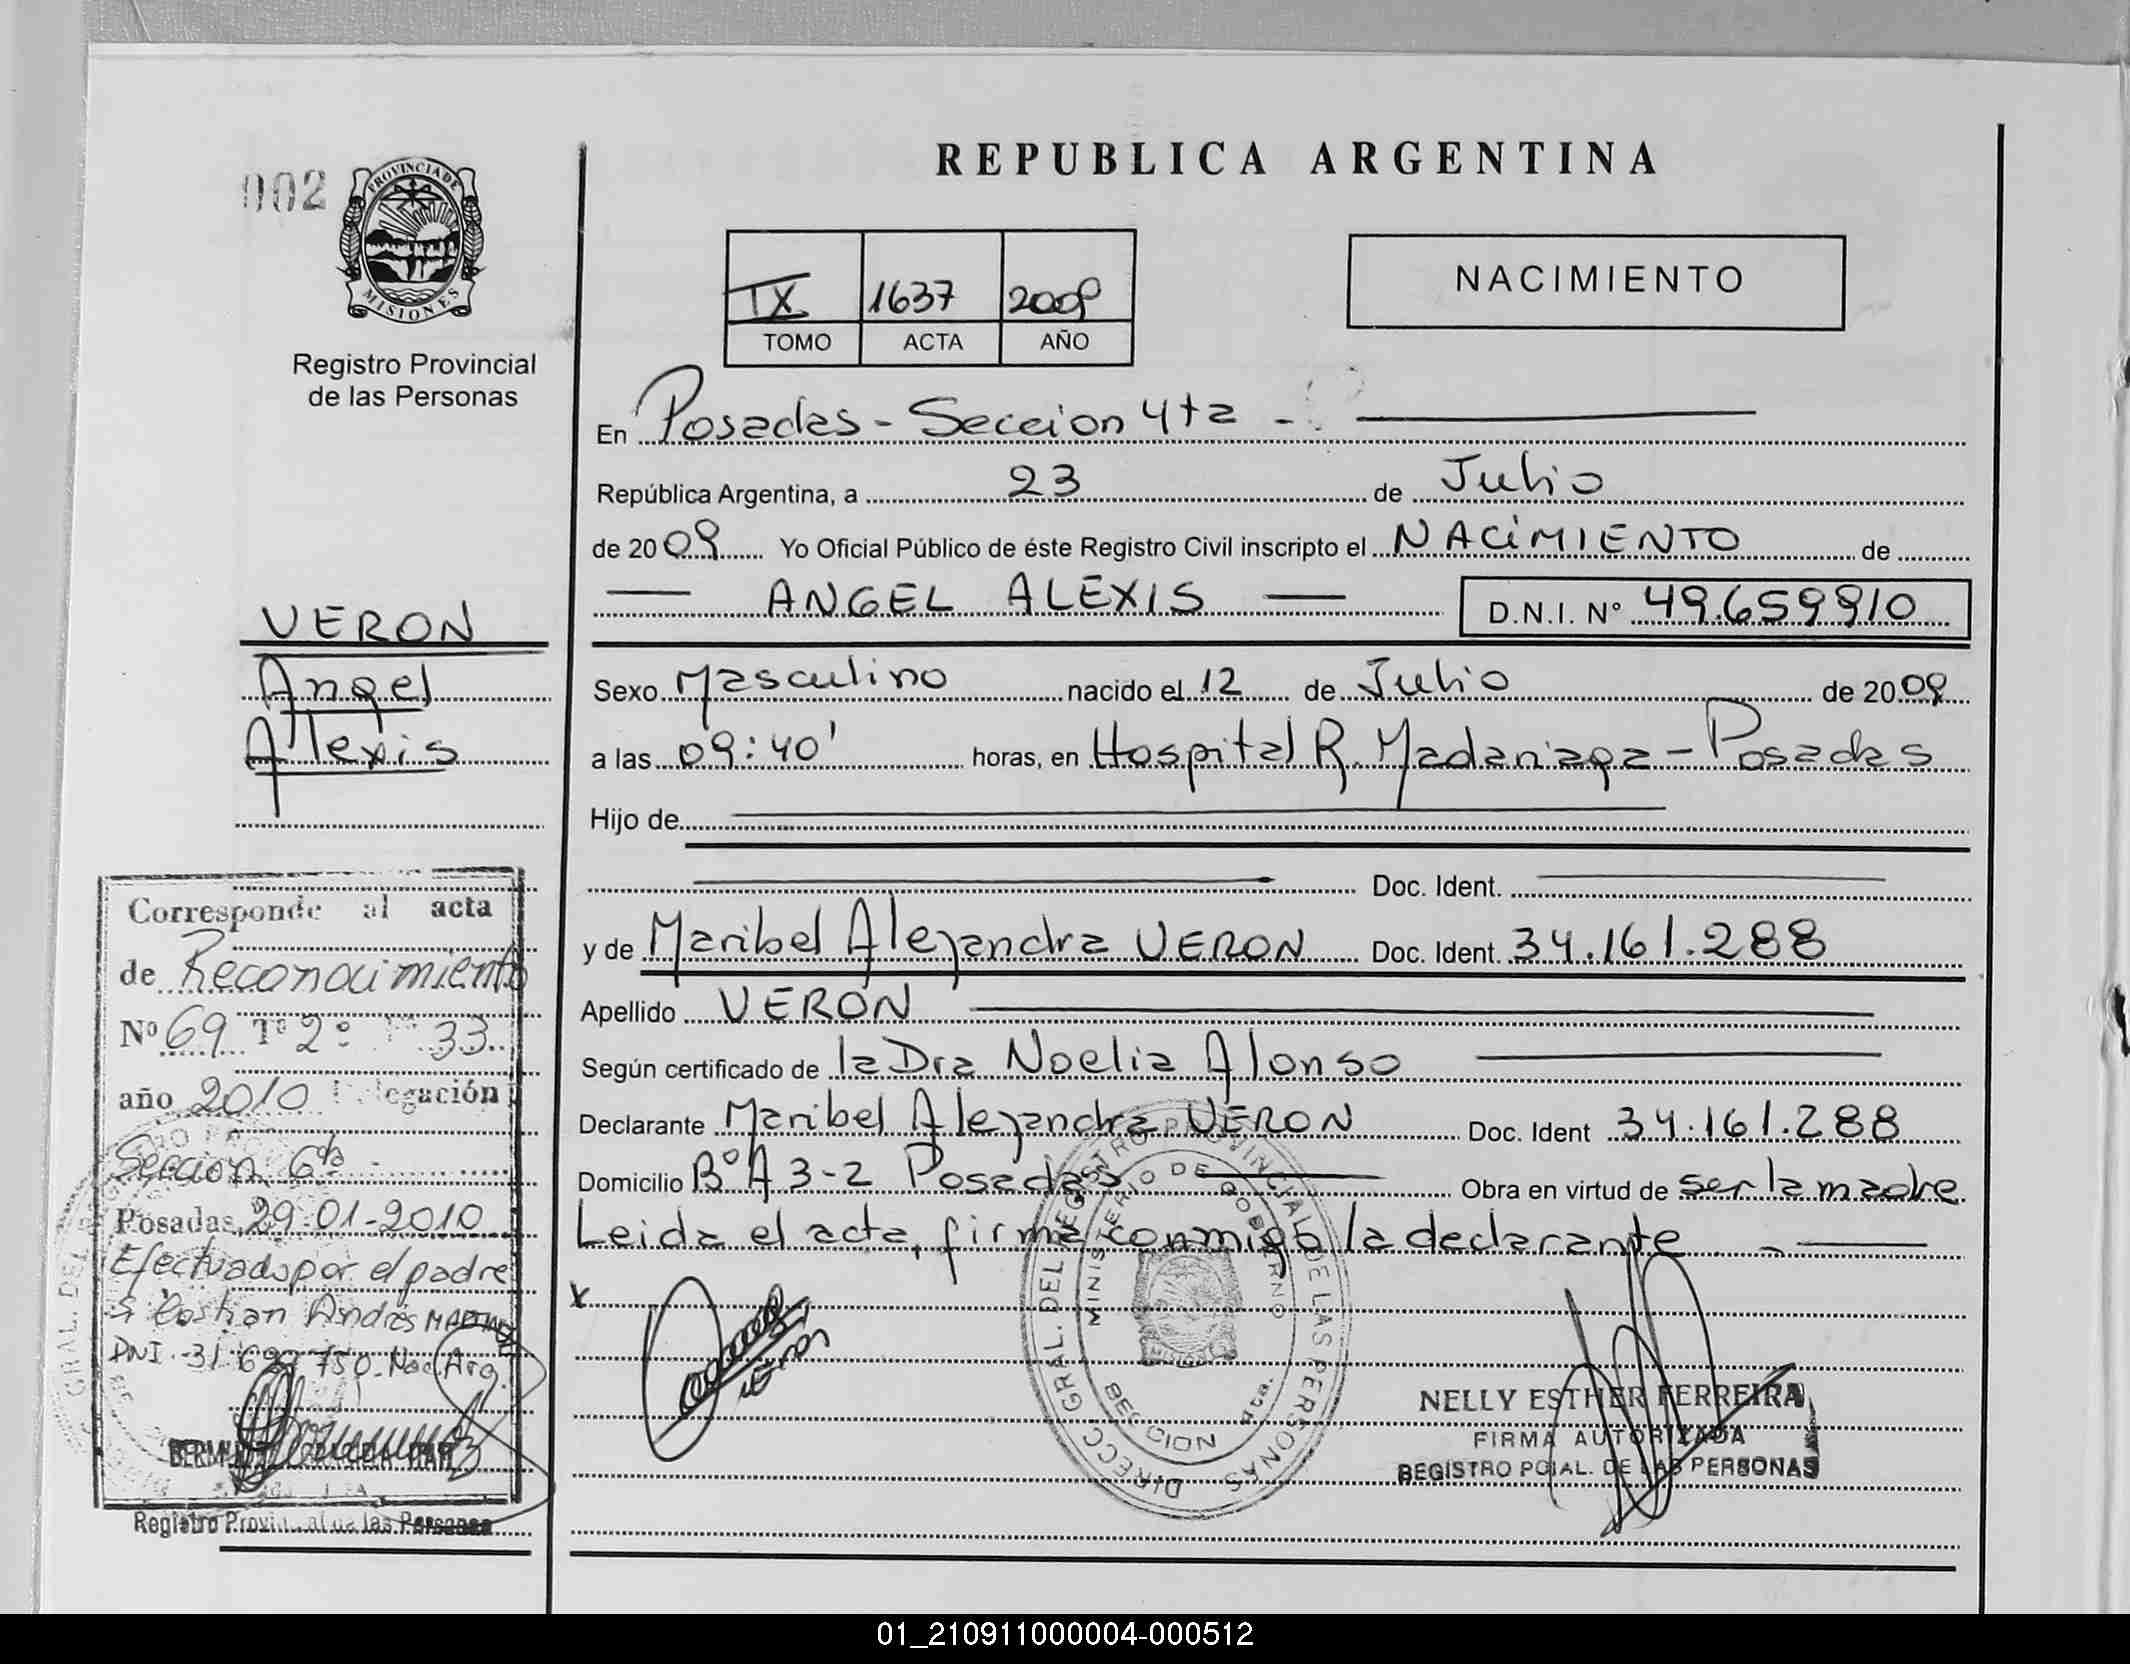 REPUBLICA ARGENTINA
002
PROVINCIA DE
MISIONES
Registro Provincial
de las Personas
TX 1637 2009
TOMO ACTA AÑO
NACIMIENTO
En Posadas - Seccion 4ta -
República Argentina, a 23 de Julio
de 2009 Yo Oficial Público de éste Registro Civil inscripto el NACIMIENTO de
ANGEL ALEXIS D.N.I. Nº 49.659910
VERON
Angel
Alexis
Sexo Masculino nacido el 12 de Julio de 2009
a las 09:40' horas, en Hospital R. Madariaga - Posadas
Hijo de
Doc. Ident.
y de Maribel Alejandra VERON Doc. Ident. 34.161.288
Apellido VERON
Según certificado de la Dra Noelia Alonso
Declarante Maribel Alejandra VERON Doc. Ident 34.161.288
Domicilio Bº A 3-2 Posadas Obra en virtud de ser la madre
Leida el acta, firma conmigo la declarante
x
Corresponde al acta
de Reconocimiento
Nº 69 Tº 2º 33
año 2010 Delegación
Sección 6ta
Posadas, 29-01-2010
Efectuado por el padre
Andrés
DNI 31 750 Nac. Arg.
Registro Provincial de las Personas
DIRECC GRAL. DEL REGISTRO PROVINCIAL DE LAS PERSONAS
MINISTERIO DE GOBIERNO
SECCION 4ta.
MISIONES
NELLY ESTHER FERREIRA
FIRMA AUTORIZADA
REGISTRO PCIAL. DE LAS PERSONAS
01_210911000004-000512